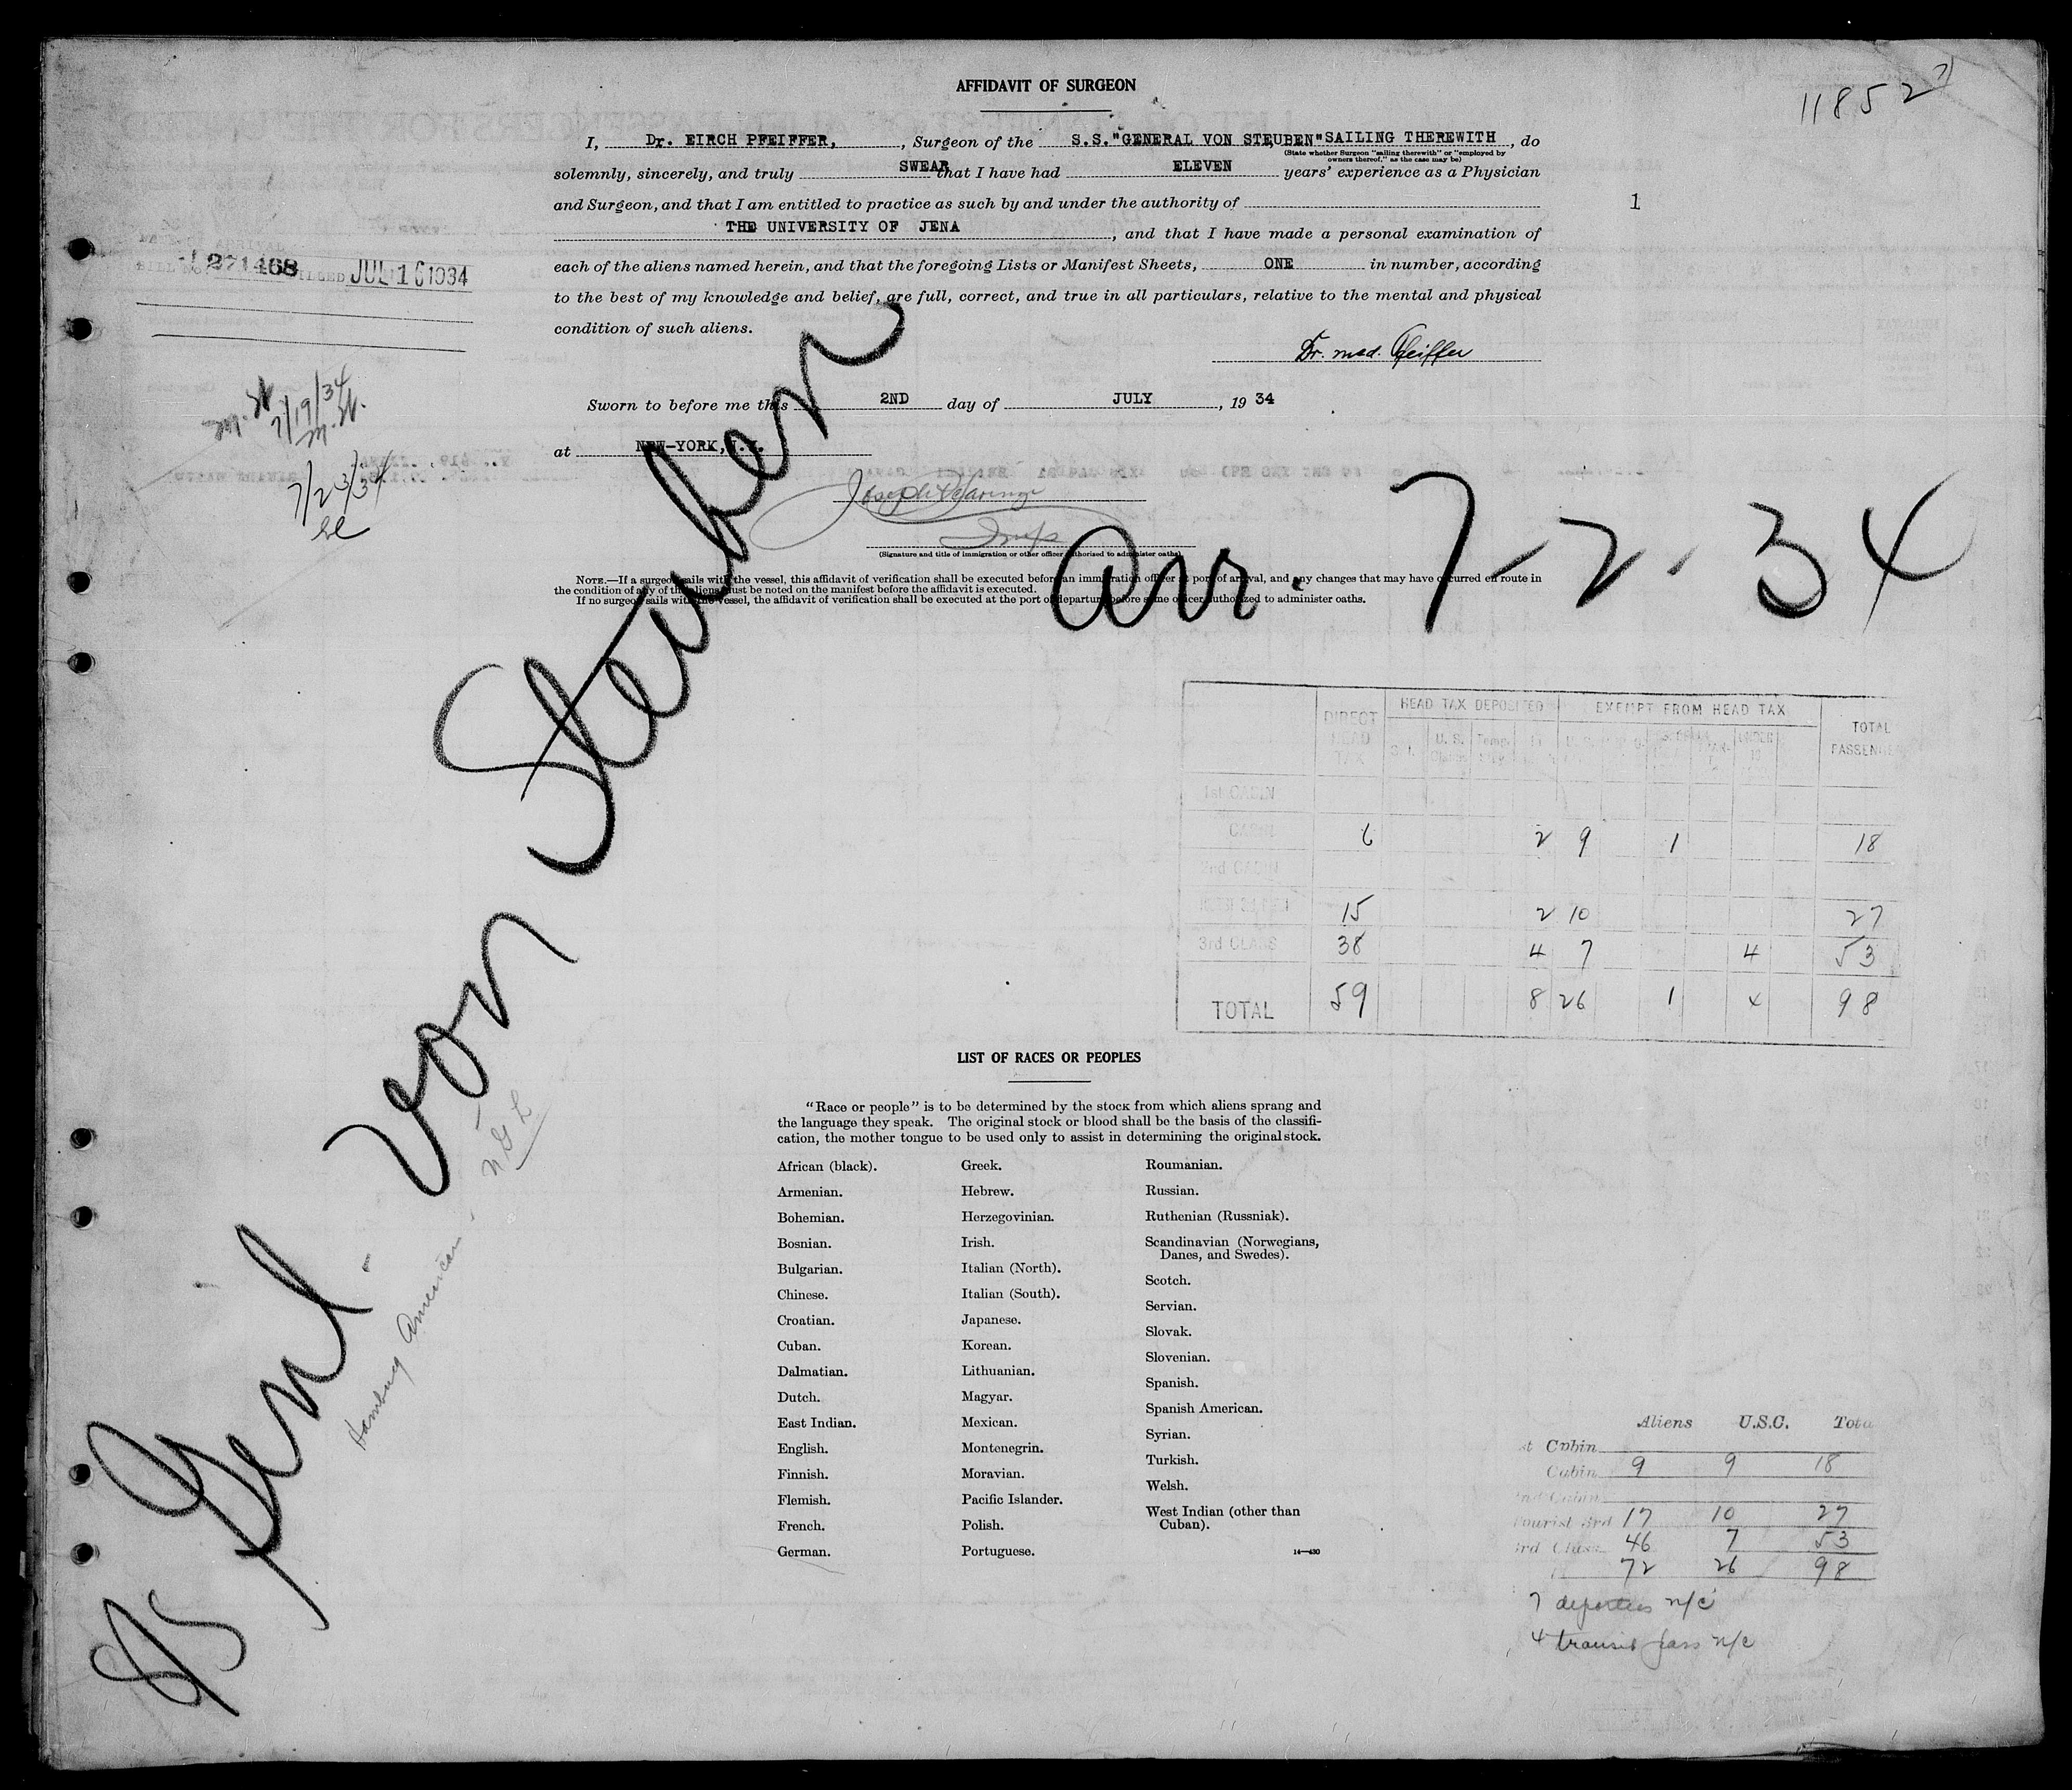 AFFIDAVIT OF SURGEON
11852
I, Dr. EIRCH PFEIFFER, , Surgeon of the S.S."GENERAL VON STEUBEN" SAILING THEREWITH , do
(State whether Surgeon "sailing therewith" or "employed by
owners thereof," as the case may be)
solemnly, sincerely, and truly SWEAR that I have had ELEVEN years' experience as a Physician
and Surgeon, and that I am entitled to practice as such by and under the authority of
1
THE UNIVERSITY OF JENA , and that I have made a personal examination of
each of the aliens named herein, and that the foregoing Lists or Manifest Sheets, ONE in number, according
to the best of my knowledge and belief, are full, correct, and true in all particulars, relative to the mental and physical
condition of such aliens.
271468 JUL 16 1934
Dr. med. Pfeiffer
7/19/34
Sworn to before me this 2ND day of JULY , 19 34
at NEW-YORK, N.Y.
7/23/34
Insp
(Signature and title of immigration or other officer authorized to administer oaths)
NOTE.—If a surgeon sails with the vessel, this affidavit of verification shall be executed before an immigration officer at port of arrival, and any changes that may have occurred en route in
the condition of any of the aliens must be noted on the manifest before the affidavit is executed.
If no surgeon sails with the vessel, the affidavit of verification shall be executed at the port of departure before some officer authorized to administer oaths.
Arr. 7-2-34
SS Genl. von Steuben
N G L
Hamburg American
DIRECT HEAD TAX HEAD TAX DEPOSITED EXEMPT FROM HEAD TAX TOTAL PASSENGE
1st CABIN
CABIN 6 2 9 1 18
2nd CABIN
15 2 10 27
3rd CLASS 38 4 7 4 53
TOTAL 59 8 26 1 4 98
LIST OF RACES OR PEOPLES
"Race or people" is to be determined by the stock from which aliens sprang and
the language they speak. The original stock or blood shall be the basis of the classifi-
cation, the mother tongue to be used only to assist in determining the original stock.
African (black).
Armenian.
Bohemian.
Bosnian.
Bulgarian.
Chinese.
Croatian.
Cuban.
Dalmatian.
Dutch.
East Indian.
English.
Finnish.
Flemish.
French.
German.
Greek.
Hebrew.
Herzegovinian.
Irish.
Italian (North).
Italian (South).
Japanese.
Korean.
Lithuanian.
Magyar.
Mexican.
Montenegrin.
Moravian.
Pacific Islander.
Polish.
Portuguese.
Roumanian.
Russian.
Ruthenian (Russniak).
Scandinavian (Norwegians,
Danes, and Swedes).
Scotch.
Servian.
Slovak.
Slovenian.
Spanish.
Spanish American.
Syrian.
Turkish.
Welsh.
West Indian (other than
Cuban).
14—430
Aliens U.S.C. Tota
st Cabin
Cabin 9 9 18
2nd Cabin
Tourist 3rd 17 10 27
3rd Class 46 7 53
72 26 98
7 deportees n/c
4 transit pass n/c